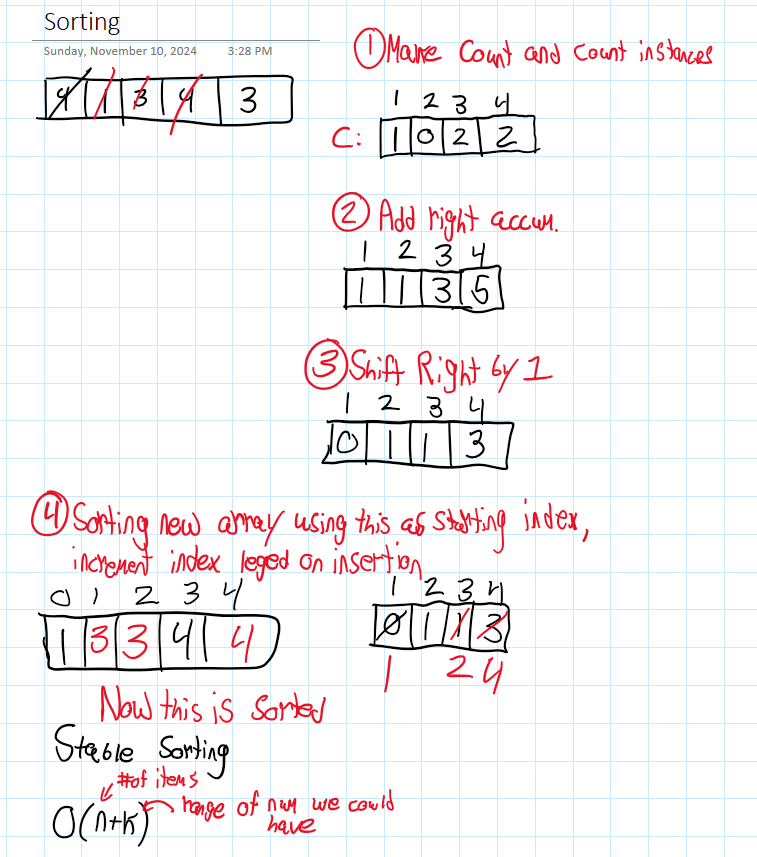 Sorting
Sunday, November 10, 2024 3:28 PM
① Make Count and Count instances
4 1 3 4 3
1 2 3 4
C: 1 0 2 2
② Add right accum.
1 2 3 4
1 1 3 5
③ Shift Right by 1
1 2 3 4
0 1 1 3
④ Sorting new array using this as starting index,
increment index leged on insertion
0 1 2 3 4
1 3 3 4 4
1 2 3 4
0 1 1 3
1 2 4
Now this is sorted
Stable Sorting
# of items
O(n+k)
range of num we could
have